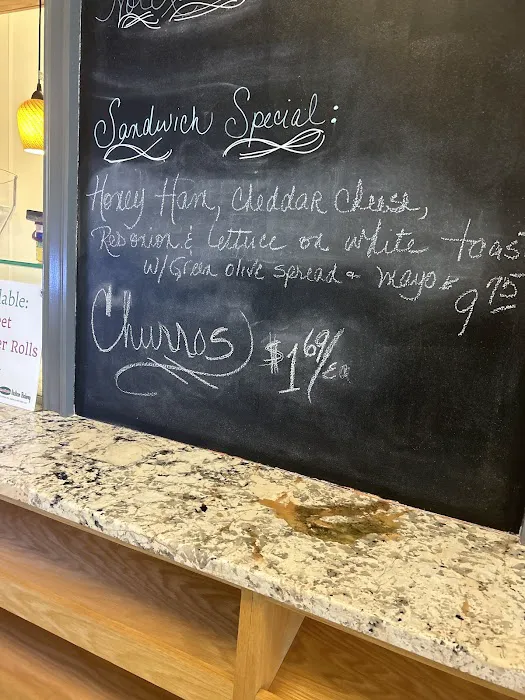 Sandwich Special:
Honey Ham, Cheddar Cheese,
Red onion & Lettuce on white toas
w/Green olive spread & mayo $9.75
Churros $1.69/ea
lable:
et
er Rolls